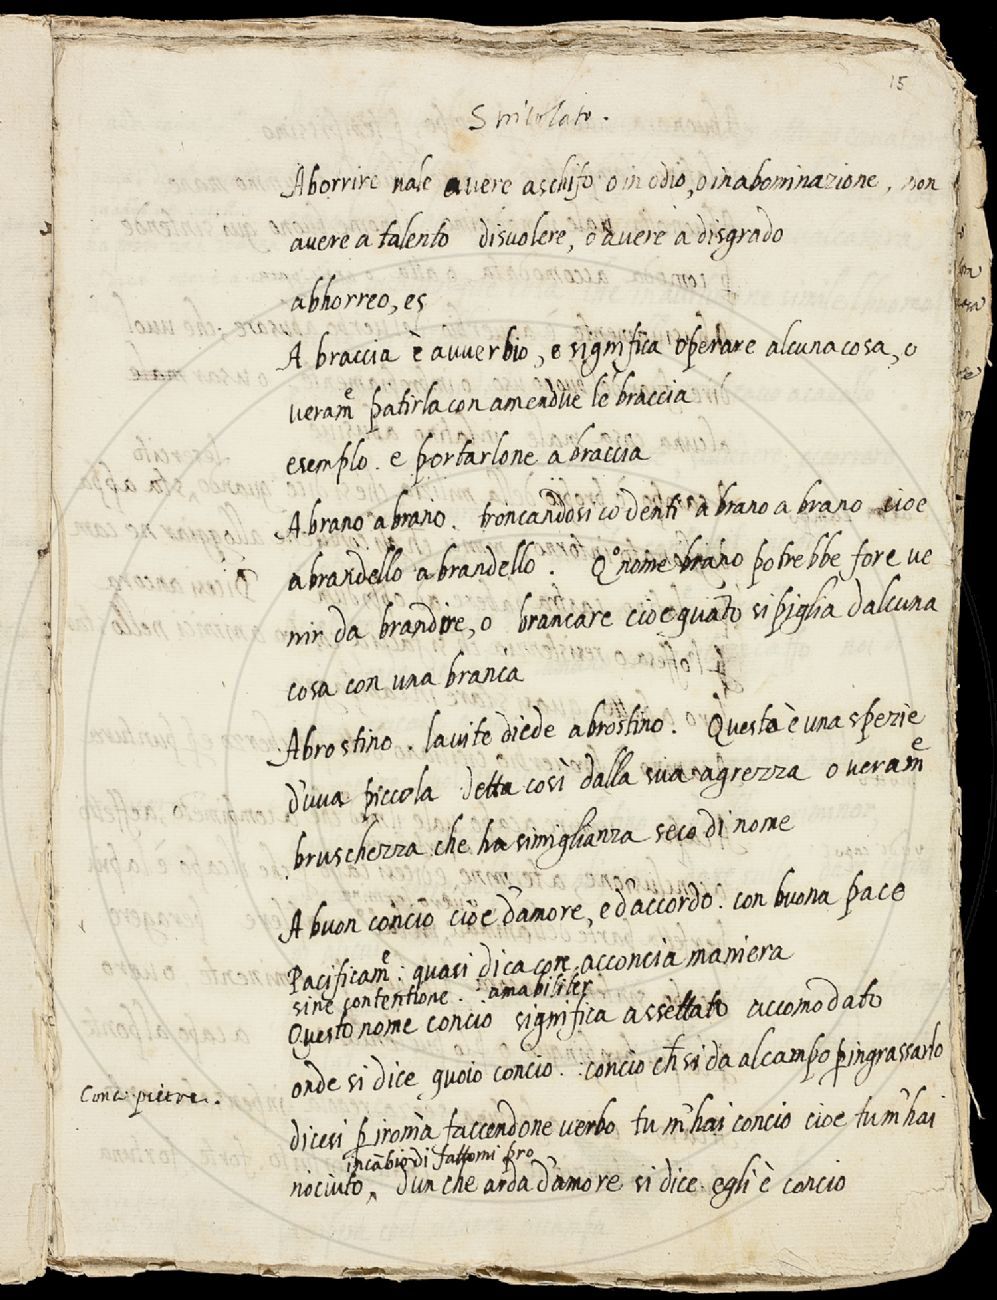 15
Aborrire vale avere aschifo, o in odio, o in abominazione, non
avere a talento disvolere, o avere a disgrado
abhorreo, es
A braccia è avverbio, e significa operare alcuna cosa, o
veram^e patirla con amendue le braccia
esemplo. e portarlone a braccia
A brano a brano. troncandosi co denti a brano a brano cioe
a brandello a brandello. Q^o nome brano potrebbe fore ve
nir da brandire, o brancare cioe quãto si piglia d'alcuna
cosa con una branca
Abrostino. la vite diede abrostino. Questa è una spezie
d'uva piccola detta cosi dalla sua agrezza o veram^e
bruschezza che ha simiglianza seco di nome
A buon concio cioè d'amore, e d'accordo. con buona pace
Pacificam^e: quasi dica con acconcia maniera
sine contentione. amabiliter
Questo nome concio significa assettato accomodato
onde si dice quoio concio. concio ch̃ si da al campo p̱ ingrassarlo
Conc. pietre.
dicesi p̱ iroñia faccendone verbo tu m'hai concio cioe tu m'hai
incãbio di fattomi pro
nociuto, d'un che arda d'amore si dice egli è concio